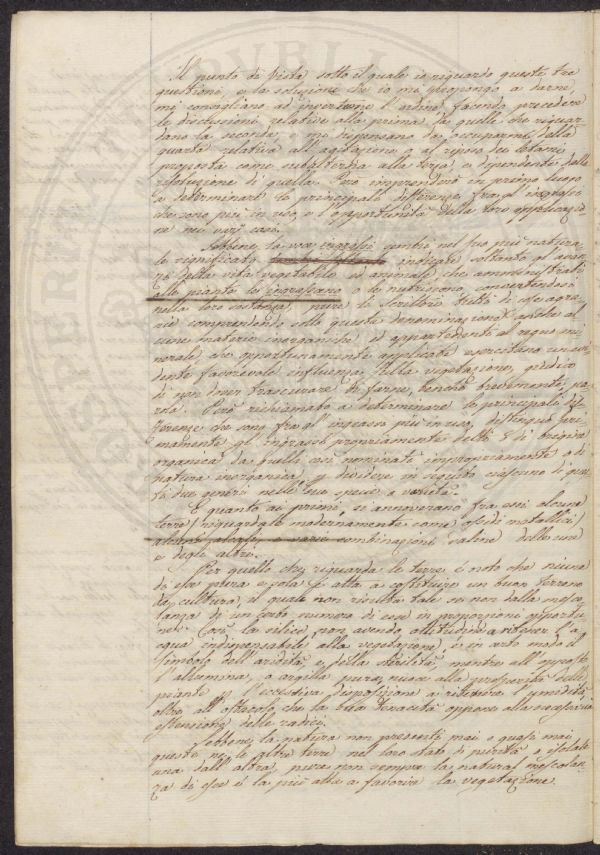 Il punto di vista sotto il quale io riguardo queste tre
questioni, e la soluzione che io mi propongo a darne,
mi consigliano ad invertirne l'ordine, facendo precedere
le discussioni relative alla prima da quelle che riguar=
dano la seconda, e mi dispensano da occuparmi della
quarta relativa all'agitazione, o al riposo de' letami,
proposta come subalterna alla terza, e dipendente dalla
risoluzione di quella. Però imprenderò in primo luogo
a determinare le principali differenze fra gl'ingrassi
che sono più in uso, e l'opportunità della loro applicazio=
ne nei varj casi.
Sebbene la voce ingrassi sembri nel suo più natura=
le significato indicare soltanto gl'avan=
zi della vita vegetabile ed animale, che amministrati
alle piante le ingrassano o le nutriscono convertendosi
nella loro sostanza, pure le scrittrici tutti di cose agra=
rie comprendendo sotto questa denominazione anche al=
cune materie inorganiche, ed appartenenti al regno mi=
nerale, che opportunamente applicate esercitano un evi=
dente favorevole influenza sulla vegetazione, giudico
di non dover trascurare di farne, benchè brevemente, pa=
rola. Però richiamato a determinare le principali dif=
ferenze che sono fra gl'ingrassi più in uso, distinguo pri=
mamente gl'ingrassi propriamente detti o di origine
organica da quelli così nominati impropriamente o di
natura inorganica, dividere in seguito ciascuno di que=
sti due generi nelle sue specie e varietà.
E quanto ai primi, si annoverano fra essi alcune
terre riguardate modernamente come ossidi metallici
e varie combinazioni saline delle une
e degli altri.
Per quello che riguarda le terre, è noto che niuna
di esse pura e sola è atta a costituire un buon terreno
da cultura, il quale non risulta tale se non dalla mesco=
lanza di un certo numero di esse in proporzioni opportu=
ne. Così la silice, non avendo attitudine a ritener l'a=
cqua indispensabile alla vegetazione, è in certo modo il
simbolo dell'aridità, e della sterilità, mentre all'opposto
l'allumina, o argilla pura, nuoce alla prosperità delle
piante per l'eccessiva disposizione a ritenere l'umidità,
oltre all'ostacolo che la sua tenacità oppone alla necessaria
estensione delle radici.
Sebbene la natura non presenti mai o quasi mai
queste nè le altre terre nel loro stato di purità e isolate
una dall'altra, pure non sempre la natural mescolan=
za di esse è la più atta a favorir la vegetazione.